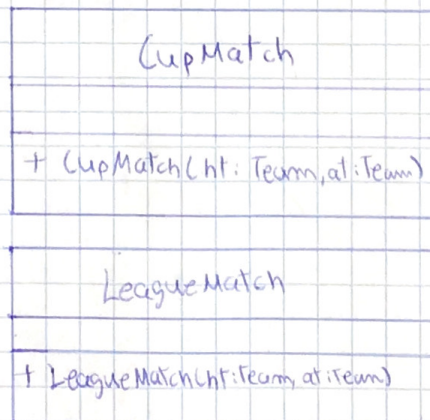 CupMatch
+ CupMatch(ht: Team, at:Team)
LeagueMatch
+ LeagueMatch(ht:Team, at:Team)